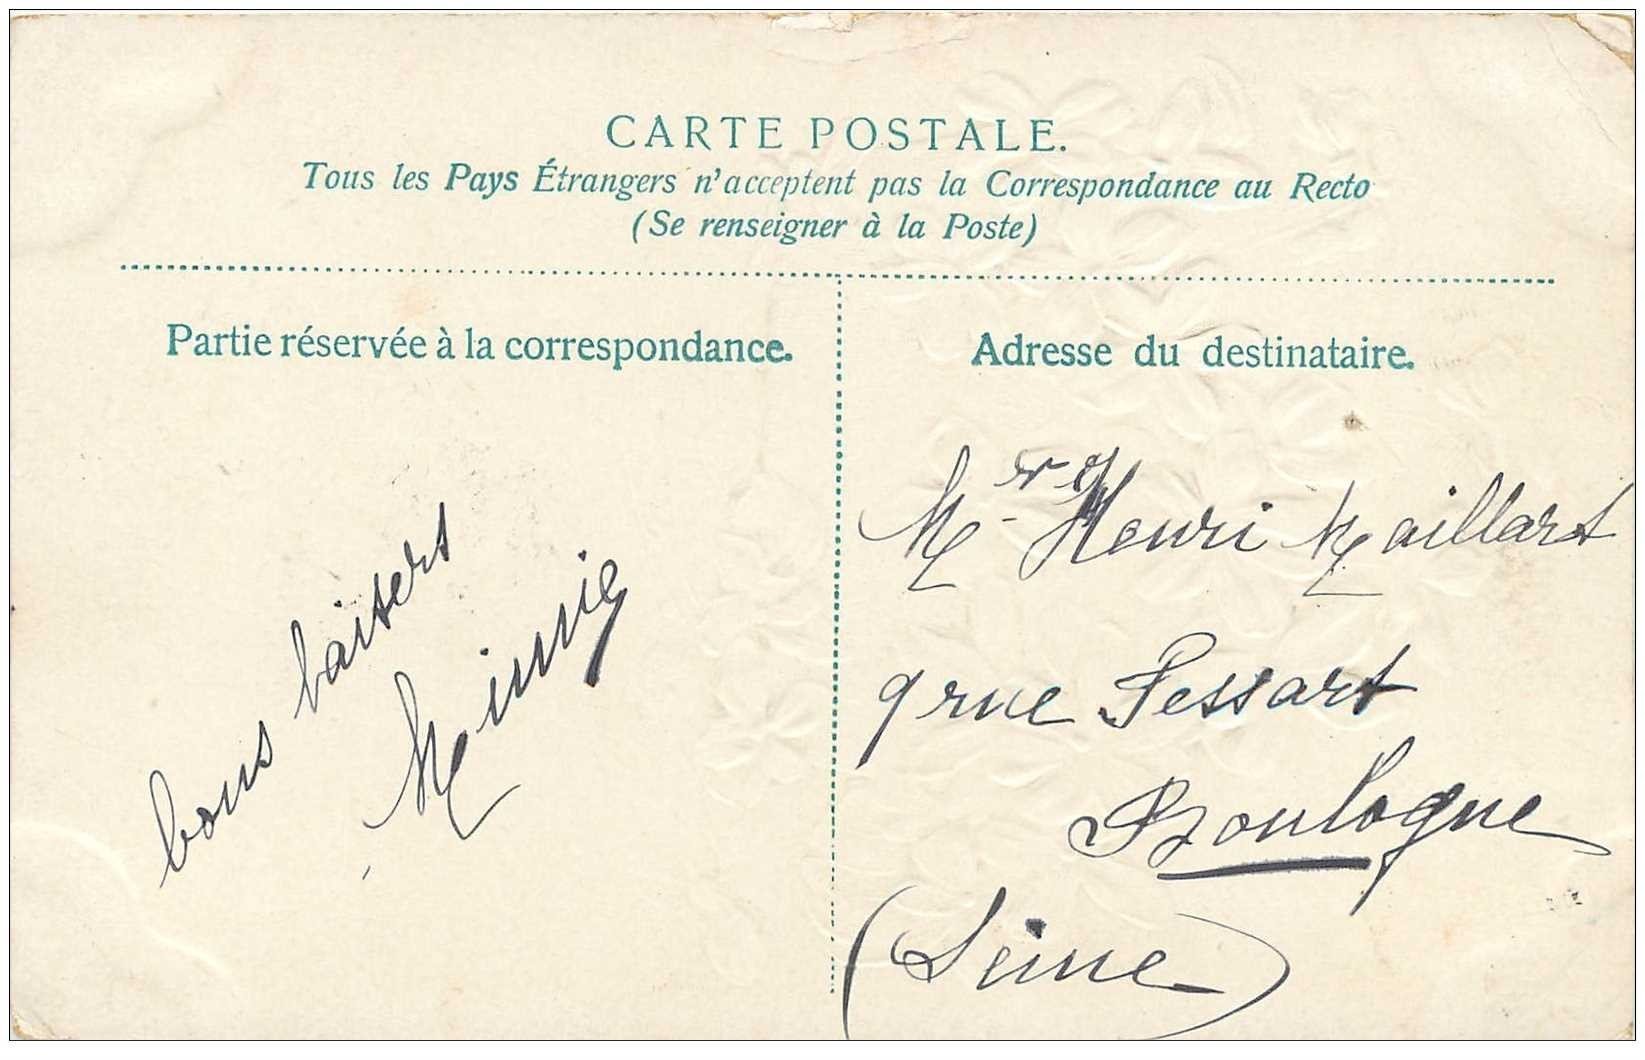 CARTE POSTALE.
Tous les Pays Étrangers n'acceptent pas la Correspondance au Recto
(Se renseigner à la Poste)
Partie réservée à la correspondance.
bons baisers
Mimie
Adresse du destinataire.
Mr Henri Maillart
9 rue Fessart
Boulogne
(Seine)